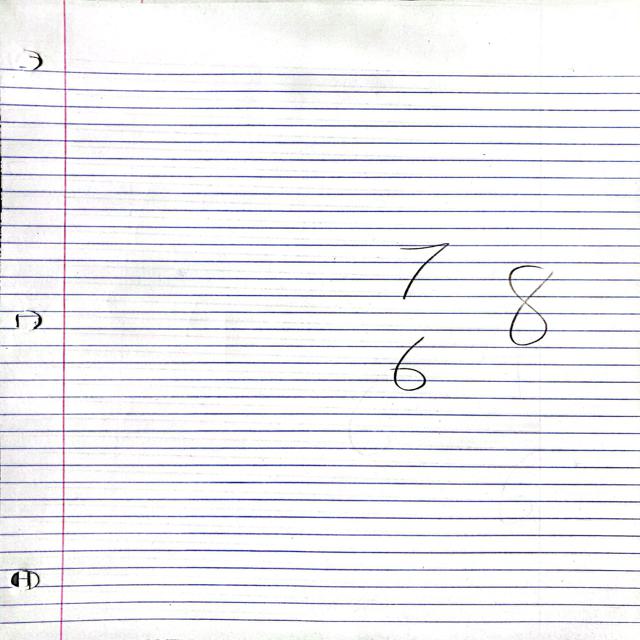 7 8
6